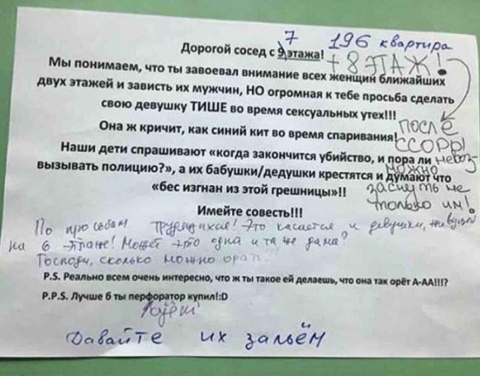 7 196 квартира
Дорогой сосед с 9 этажа!
+ 8 ЭТАЖ!
Мы понимаем, что ты завоевал внимание всех женщин ближайших
двух этажей и зависть их мужчин, НО огромная к тебе просьба сделать
свою девушку ТИШЕ во время сексуальных утех!!!
Она ж кричит, как синий кит во время спаривания!
ПОСЛЕ
ССОРЫ
невоз-
можно
заснуть не
только им!
Наши дети спрашивают «когда закончится убийство, и пора ли
вызывать полицию?», а их бабушки/дедушки крестятся и думают что
«бес изгнан из этой грешницы»!!
Имейте совесть!!!
По просьбам Трудящихся! Это касается и девушки, живущей
на 6 этаже! Может это одна и та же дама,
Господи, сколько можно орать
P.S. Реально всем очень интересно, что ж ты такое ей делаешь, что она так орёт А-АА!!!?
P.P.S. Лучше б ты перфоратор купил!:D
Давайте их зальём